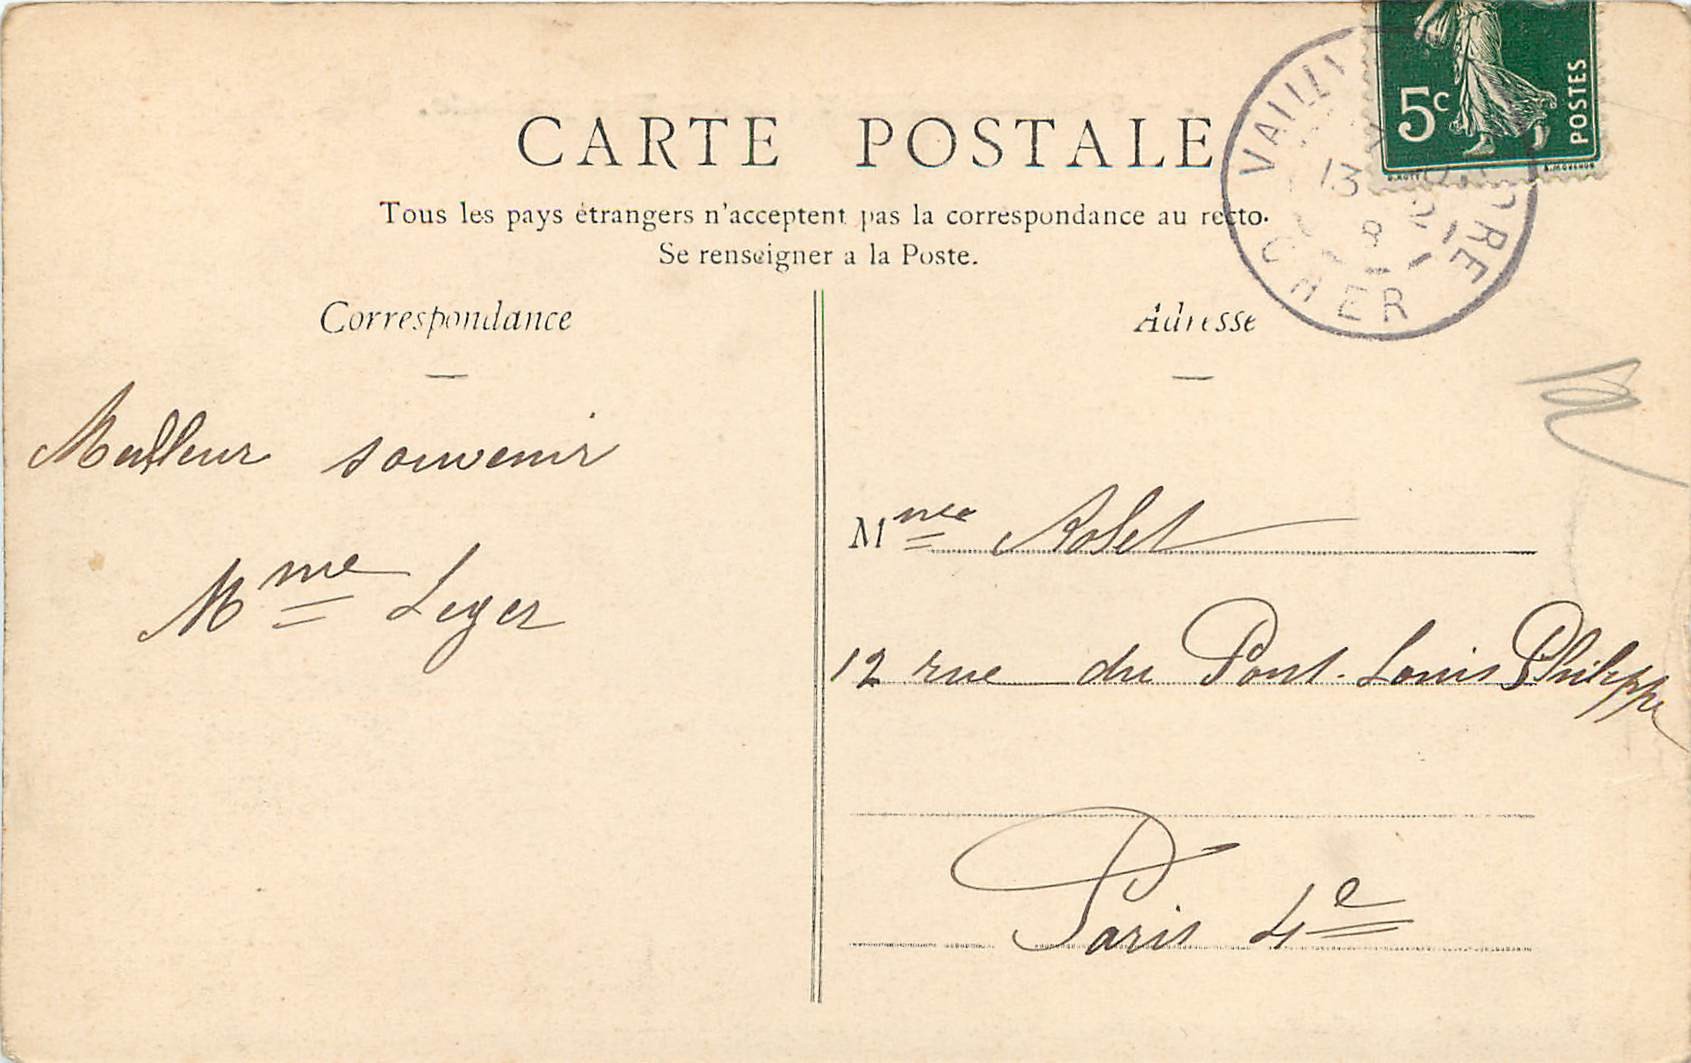 CARTE POSTALE
Tous les pays étrangers n'acceptent pas la correspondance au recto.
Se renseigner a la Poste.
Correspondance
Adresse
Meilleur souvenir
Mme Leger
Mme Rolet
12 rue du Pont-Louis Philippe
Paris 4e
5c
POSTES
VAILLY
13
8
CHER